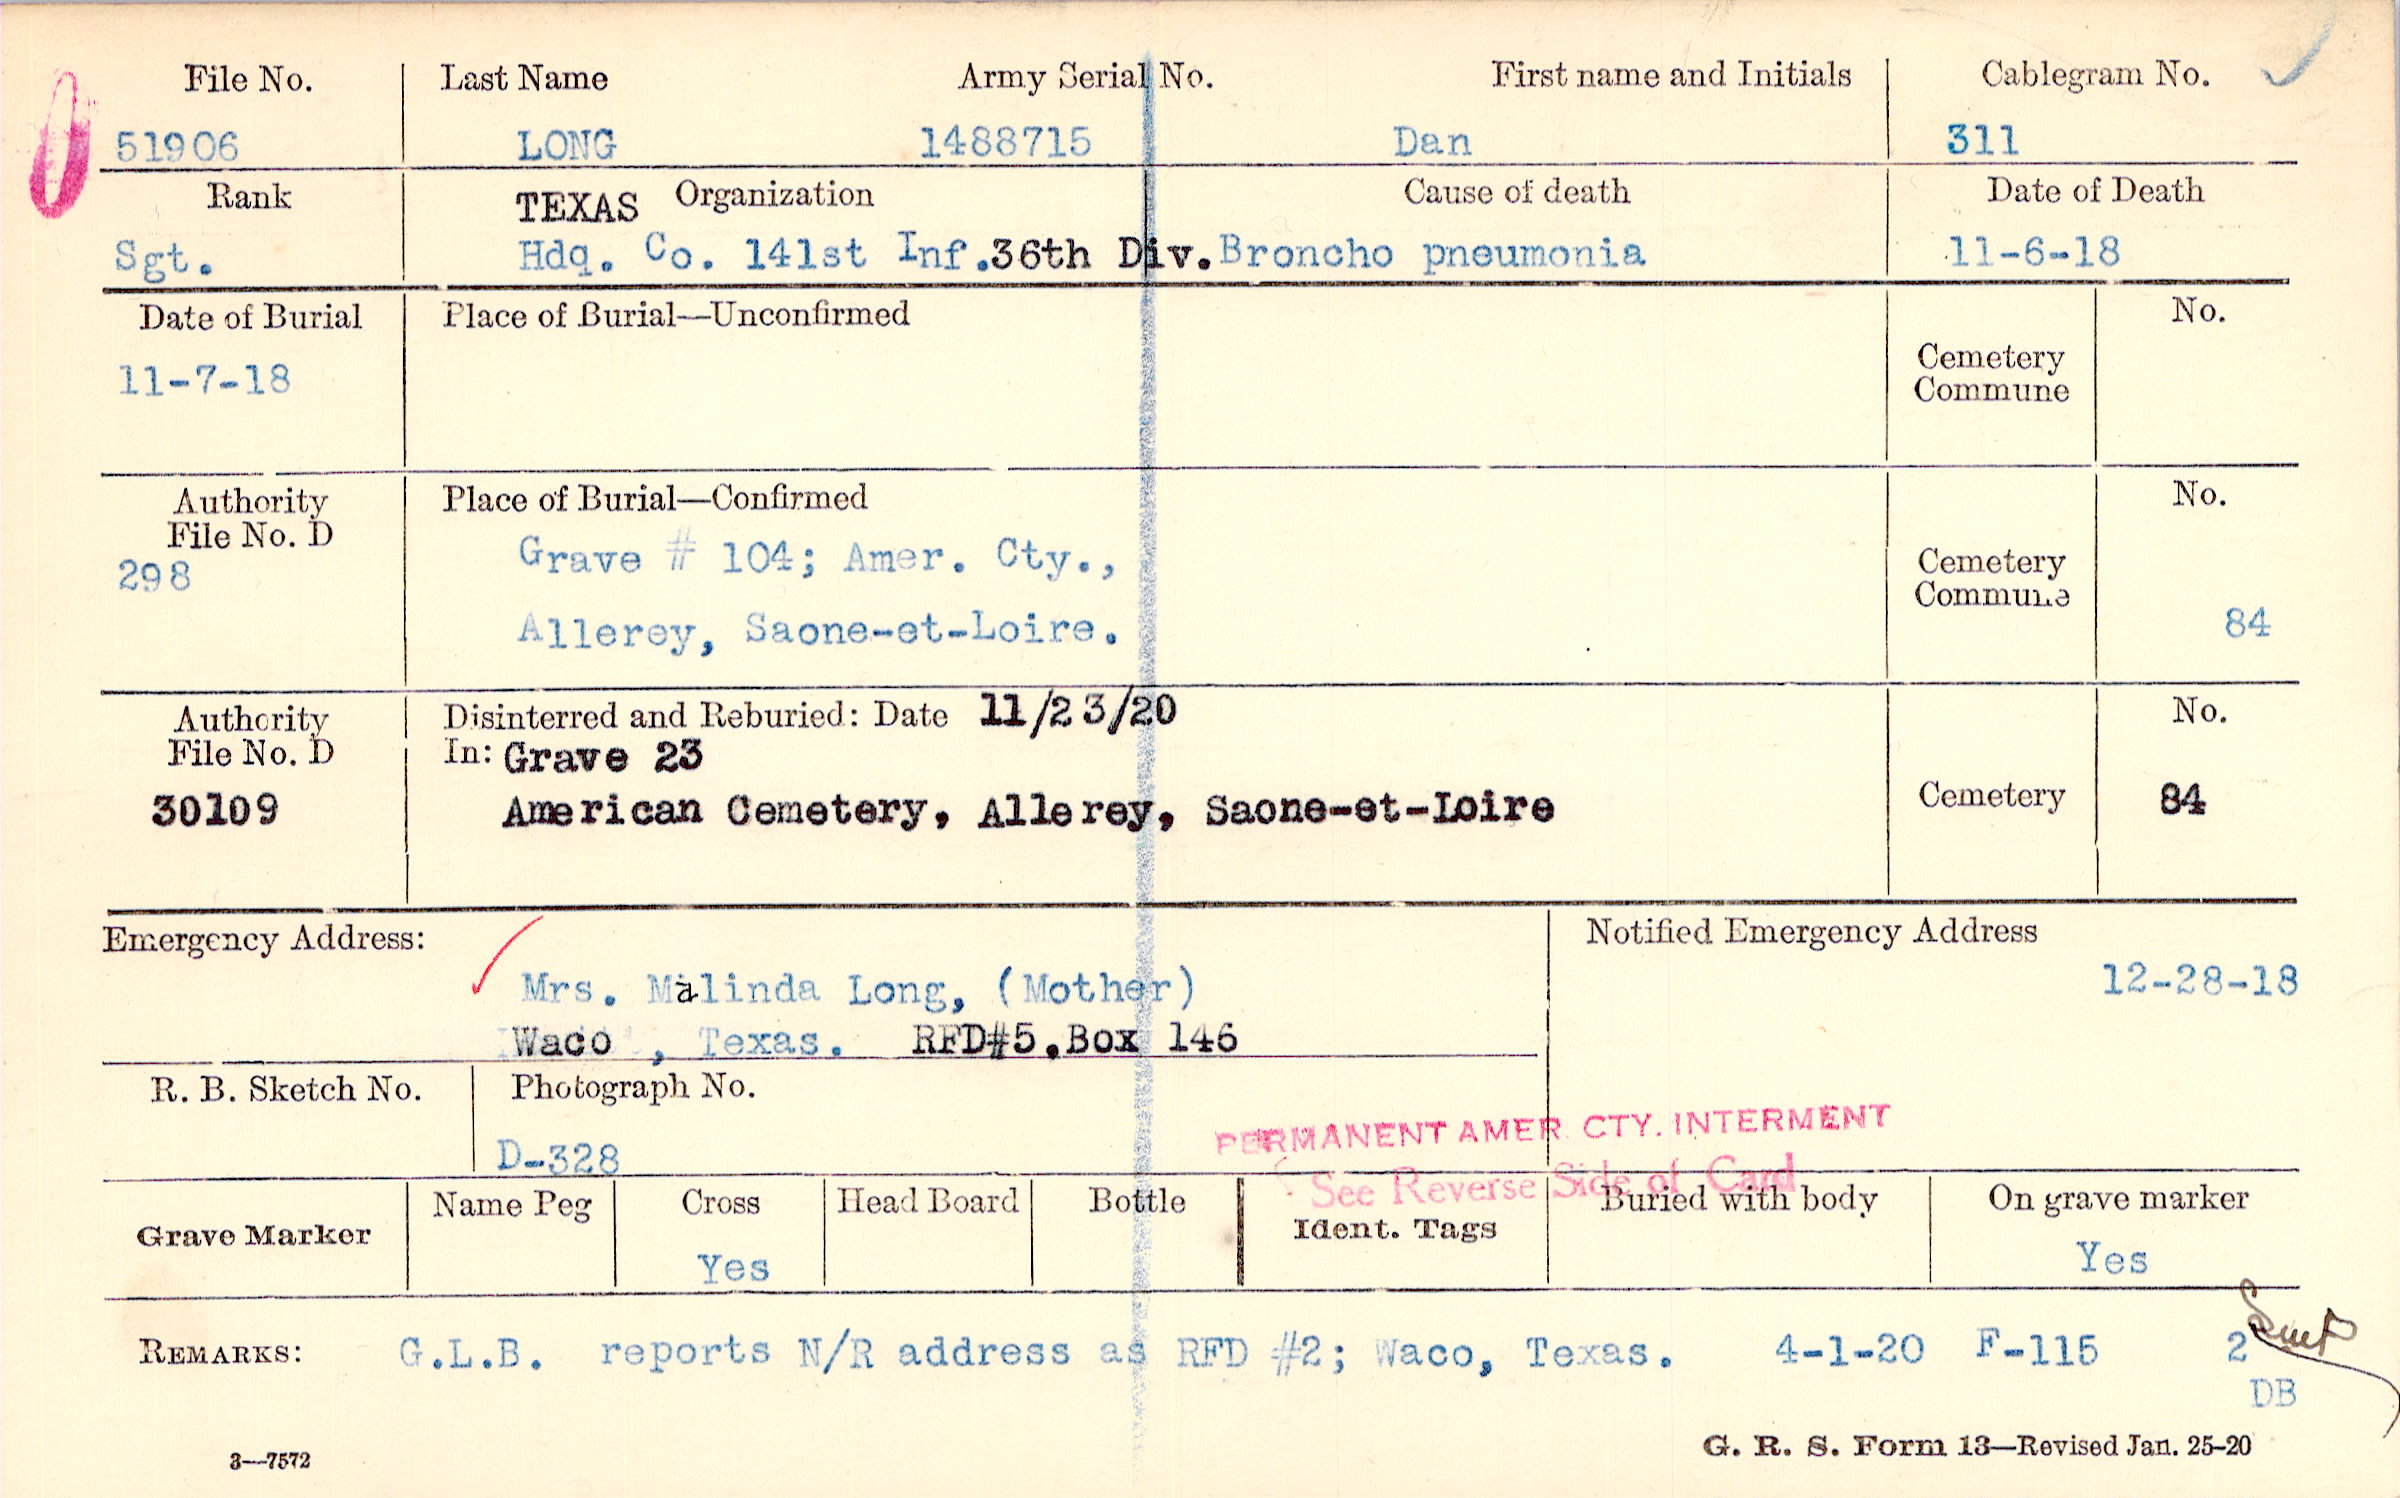 File No. Last Name Army Serial No. First name and Initials Cablegram No.
51906 LONG 1488715 Dan 311
Rank TEXAS Organization Cause of death Date of Death
Sgt. Hdq. Co. 141st Inf. 36th Div. Broncho pneumonia 11-6-18
Date of Burial Place of Burial—Unconfirmed No.
11-7-18 Cemetery
Commune
Authority Place of Burial—Confirmed No.
File No. D Grave # 104; Amer. Cty., Cemetery
298 Commune
Allerey, Saone-et-Loire. 84
Authority Disinterred and Reburied: Date 11/23/20 No.
File No. D In: Grave 23
30109 American Cemetery, Allerey, Saone-et-Loire Cemetery 84
Emergency Address: Notified Emergency Address
Mrs. Malinda Long, (Mother) 12-28-18
Waco , Texas. RFD#5.Box 146
R. B. Sketch No. Photograph No.
D-328
PERMANENT AMER. CTY. INTERMENT
See Reverse Side of Card
Grave Marker Name Peg Cross Head Board Bottle Ident. Tags Buried with body On grave marker
Yes Yes
REMARKS: G.L.B. reports N/R address as RFD #2; Waco, Texas. 4-1-20 F-115 2
DB
3—7572 G. R. S. Form 13—Revised Jan. 25-20